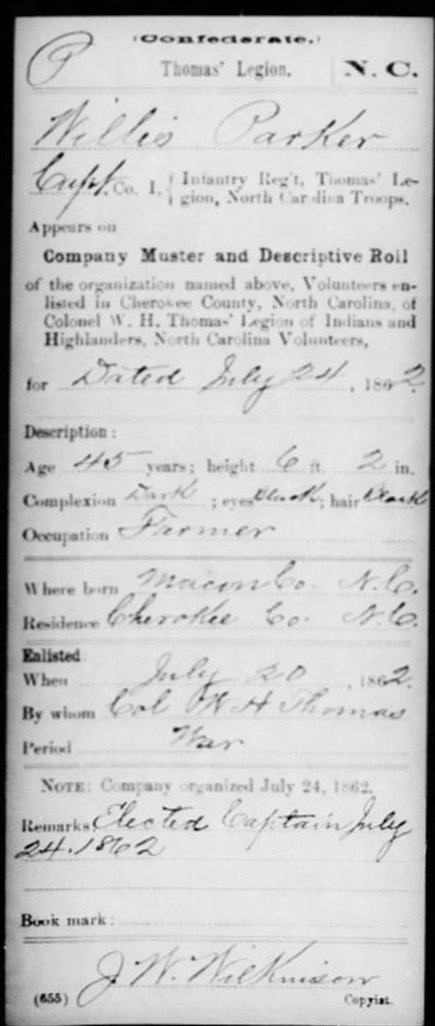 (Confederate.)
P Thomas' Legion. N. C.
Willis Parker
Capt, Co. I, { Infantry Reg't, Thomas' Le-
gion, North Carolina Troops.
Appears on
Company Muster and Descriptive Roll
of the organization named above, Volunteers en-
listed in Cherokee County, North Carolina, of
Colonel W. H. Thomas' Legion of Indians and
Highlanders, North Carolina Volunteers,
for Dated July 24, 1862.
Description:
Age 45 years; height 6 ft. 2 in.
Complexion Dark; eyes Black; hair Black
Occupation Farmer
Where born Macon Co. N.C.
Residence Cherokee Co. N.C.
Enlisted
When July 20, 1862.
By whom Col W H Thomas
Period War
NOTE: Company organized July 24, 1862.
Remarks: Elected Captain July
24. 1862
Book mark:
J W. Wilkinson
(655) Copyist.